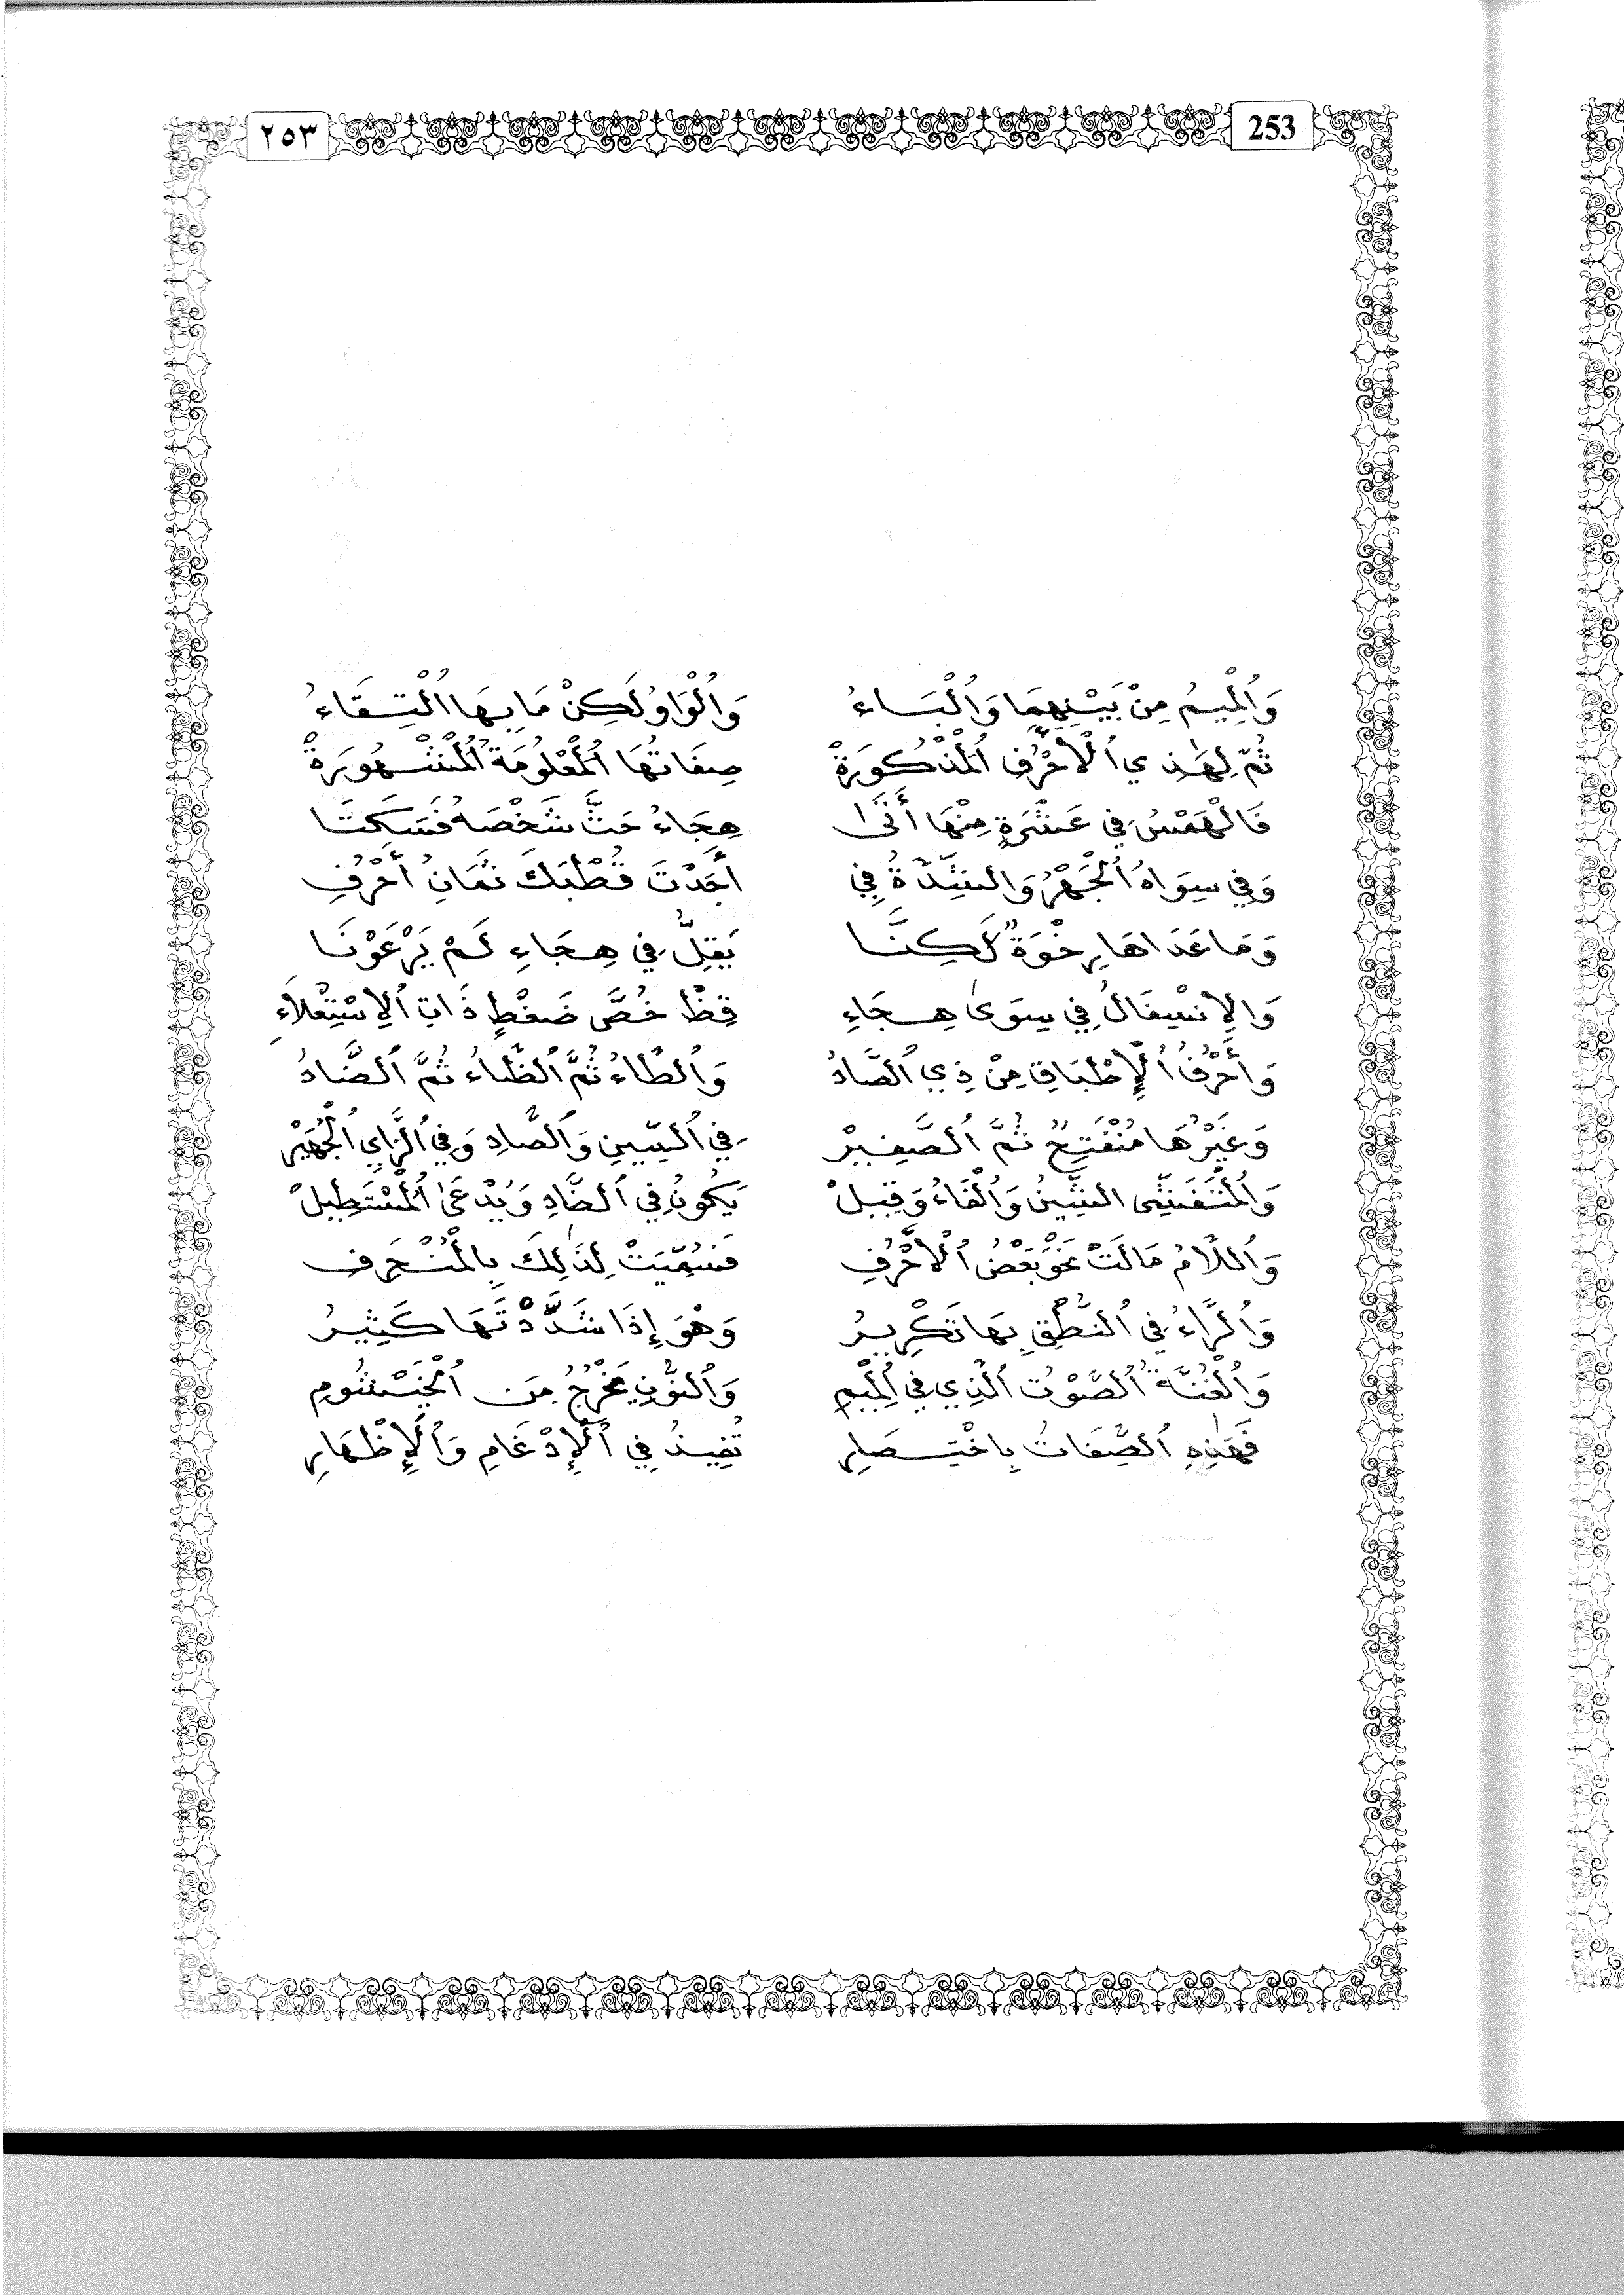 ٢٥٣ 253
وَالْمِيمُ مِنْ بَيْنِهِمَا وَالْبَاءُ وَالْوَاوُ لَكِنْ مَا بِهَا الْتِقَاءُ
ثُمَّ لِهَذِي الْأَحْرُفِ الْمَذْكُورَةْ صِفَاتُهَا الْمَعْلُومَةُ الْمَشْهُورَةْ
فَالْهَمْسُ فِي عَشَرَةٍ مِنْهَا أَتَى هِجَاءُ حَثَّ شَخْصَهُ فَسَكَتَا
وَفِي سِوَاهُ الْجَهْرُ وَالشِّدَّةُ فِي أَجَدْتَ قُطْبَكَ ثَمَانُ أَحْرُفِ
وَمَا عَدَاهَا رِخْوَةٌ لَكِنَّا يَقِلُّ فِي هِجَاءِ لَمْ يَرْعَوْنَا
وَالِانْسِفَالُ فِي سِوَى هِجَاءِ قِظْ خُصَّ ضَغْطٍ ذَاتِ الِاسْتِعْلَاءِ
وَأَحْرُفُ الْإِطْبَاقِ مِنْ ذِي الصَّادُ وَالطَّاءُ ثُمَّ الظَّاءُ ثُمَّ الضَّادُ
وَغَيْرُهَا مُنْفَتِحٌ ثُمَّ الصَّفِيرْ فِي السِّينِ وَالصَّادِ وَفِي الزَّايِ الْجَهِيرْ
وَالْمُتَفَشِّي الشِّينُ وَالْفَاءُ وَقِيلْ يَكُونُ فِي الضَّادِ وَيُدْعَى الْمُسْتَطِيلْ
وَاللَّامُ مَالَتْ نَحْوَ بَعْضِ الْأَحْرُفِ فَسُمِّيَتْ لِذَلِكَ بِالْمُنْحَرِفِ
وَالرَّاءُ فِي النُّطْقِ بِهَا تَكْرِيرُ وَهْوَ إِذَا شَدَّدْتَهَا كَثِيرُ
وَالْغُنَّةُ الصَّوْتُ الَّذِي فِي الْمِيمِ وَالنُّونِ يَخْرُجُ مِنَ الْخَيْشُومِ
فَهَذِهِ الصِّفَاتُ بِاخْتِصَارِ تُفِيدُ فِي الْإِدْغَامِ وَالْإِظْهَارِ